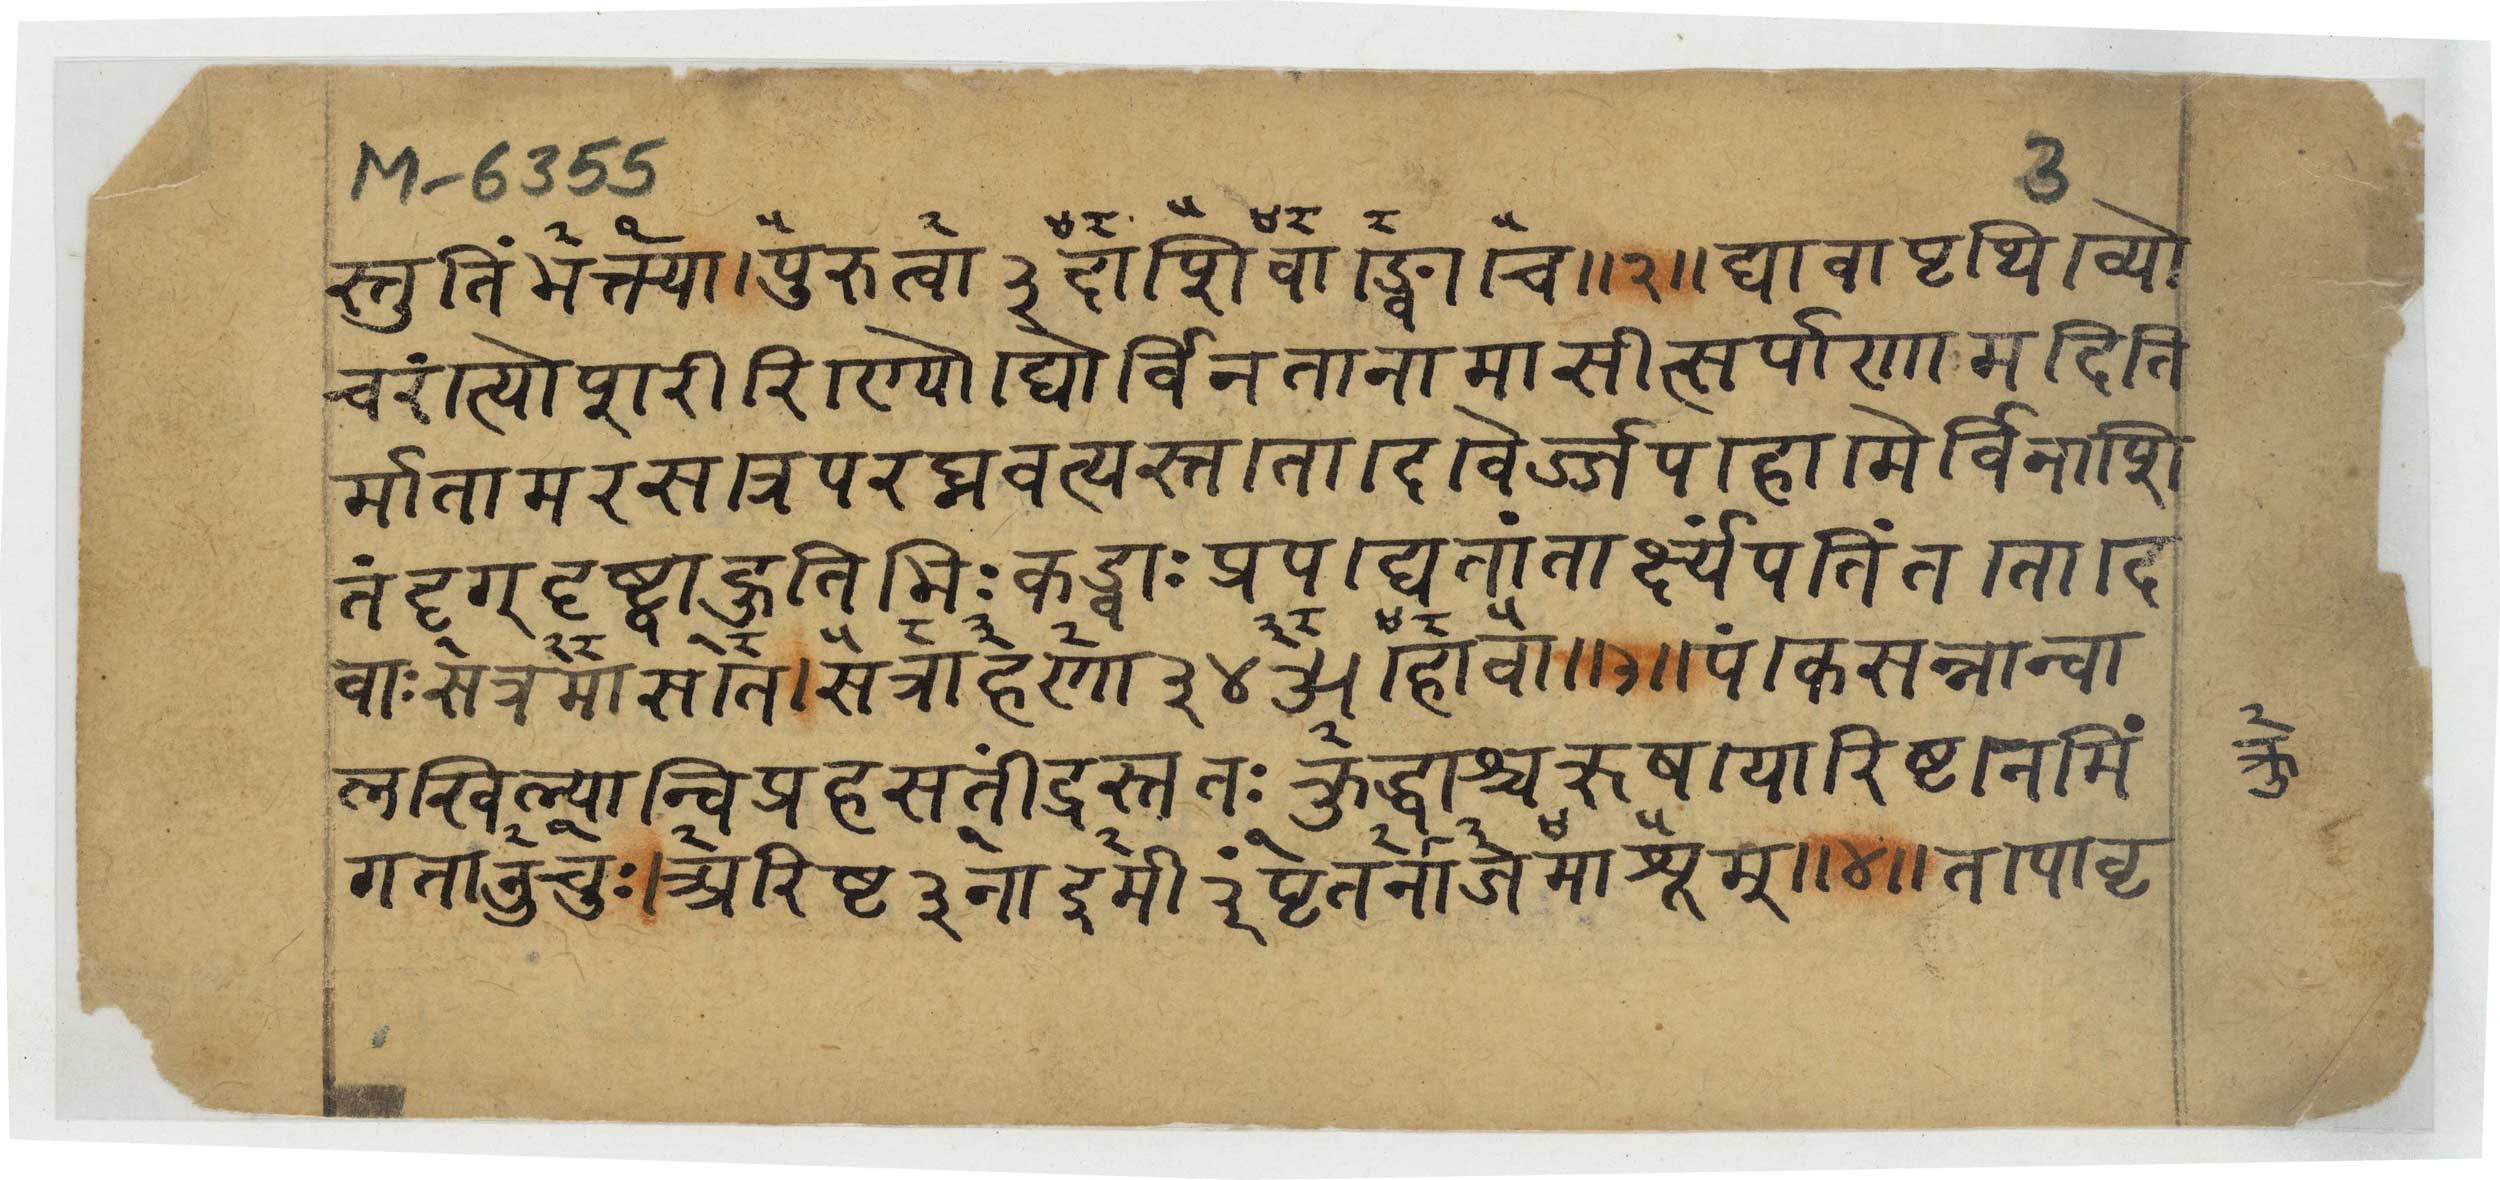 M-6355 3
स्तुतिं भक्त्या। पुरुत्वा ३ द्दाशिवा ।ङ्वा ।च॥२॥ द्यावापृथि।व्यो
चरं।त्यो शरीरि।ण्यो।द्योर्विनतानामासीत्सर्पाणामदिति
र्मातामरस।त्रपरघ्नवत्यस्त।ता।द।वेर्ज्जप।हा।मेर्विनाशि
तं दृग्दृष्ट्वाहुतिभिः कड्वाः प्रप।द्यतांतार्क्ष्यंपतिंत।ता।द
वाः सत्रमास।ते। सत्राहणा ३४ अ।हावा॥३॥ पं।कसन्नान्वा
लखिल्यान्विप्रहसतींद्रस्ततः क्रुद्धाश्चरूषयारिष्ट।नमिं
क्रु
गतानुचुः। अरिष्ट ३ नाइमी ३ं पृतनाजमाश्रूम्॥४॥ त।पावृ